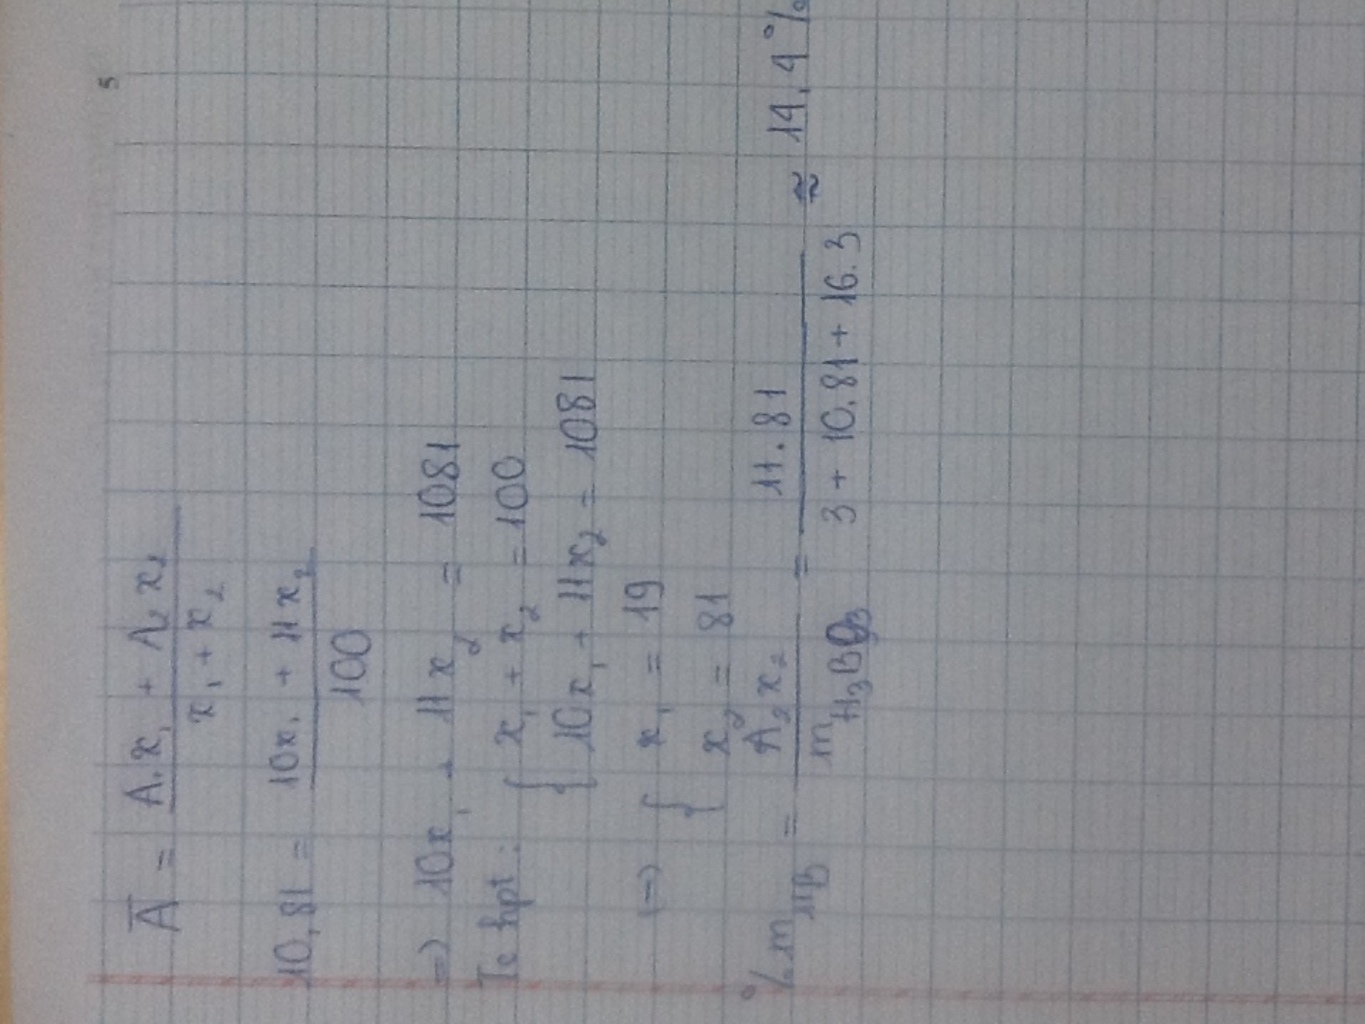 5
A̅ = (A₁x₁ + A₂x₂) / (x₁ + x₂)
10,81 = (10x₁ + 11x₂) / 100
=) 10x₁ + 11x₂ = 1081
Tc hpt : { x₁ + x₂ = 100
10x₁ + 11x₂ = 1081
(=) { x₁ = 19
x₂ = 81
%m₁₁B = A₂x₂ / mH₃BO₃ = 11.81 / (3 + 10.81 + 16.3) ≈ 14,4%